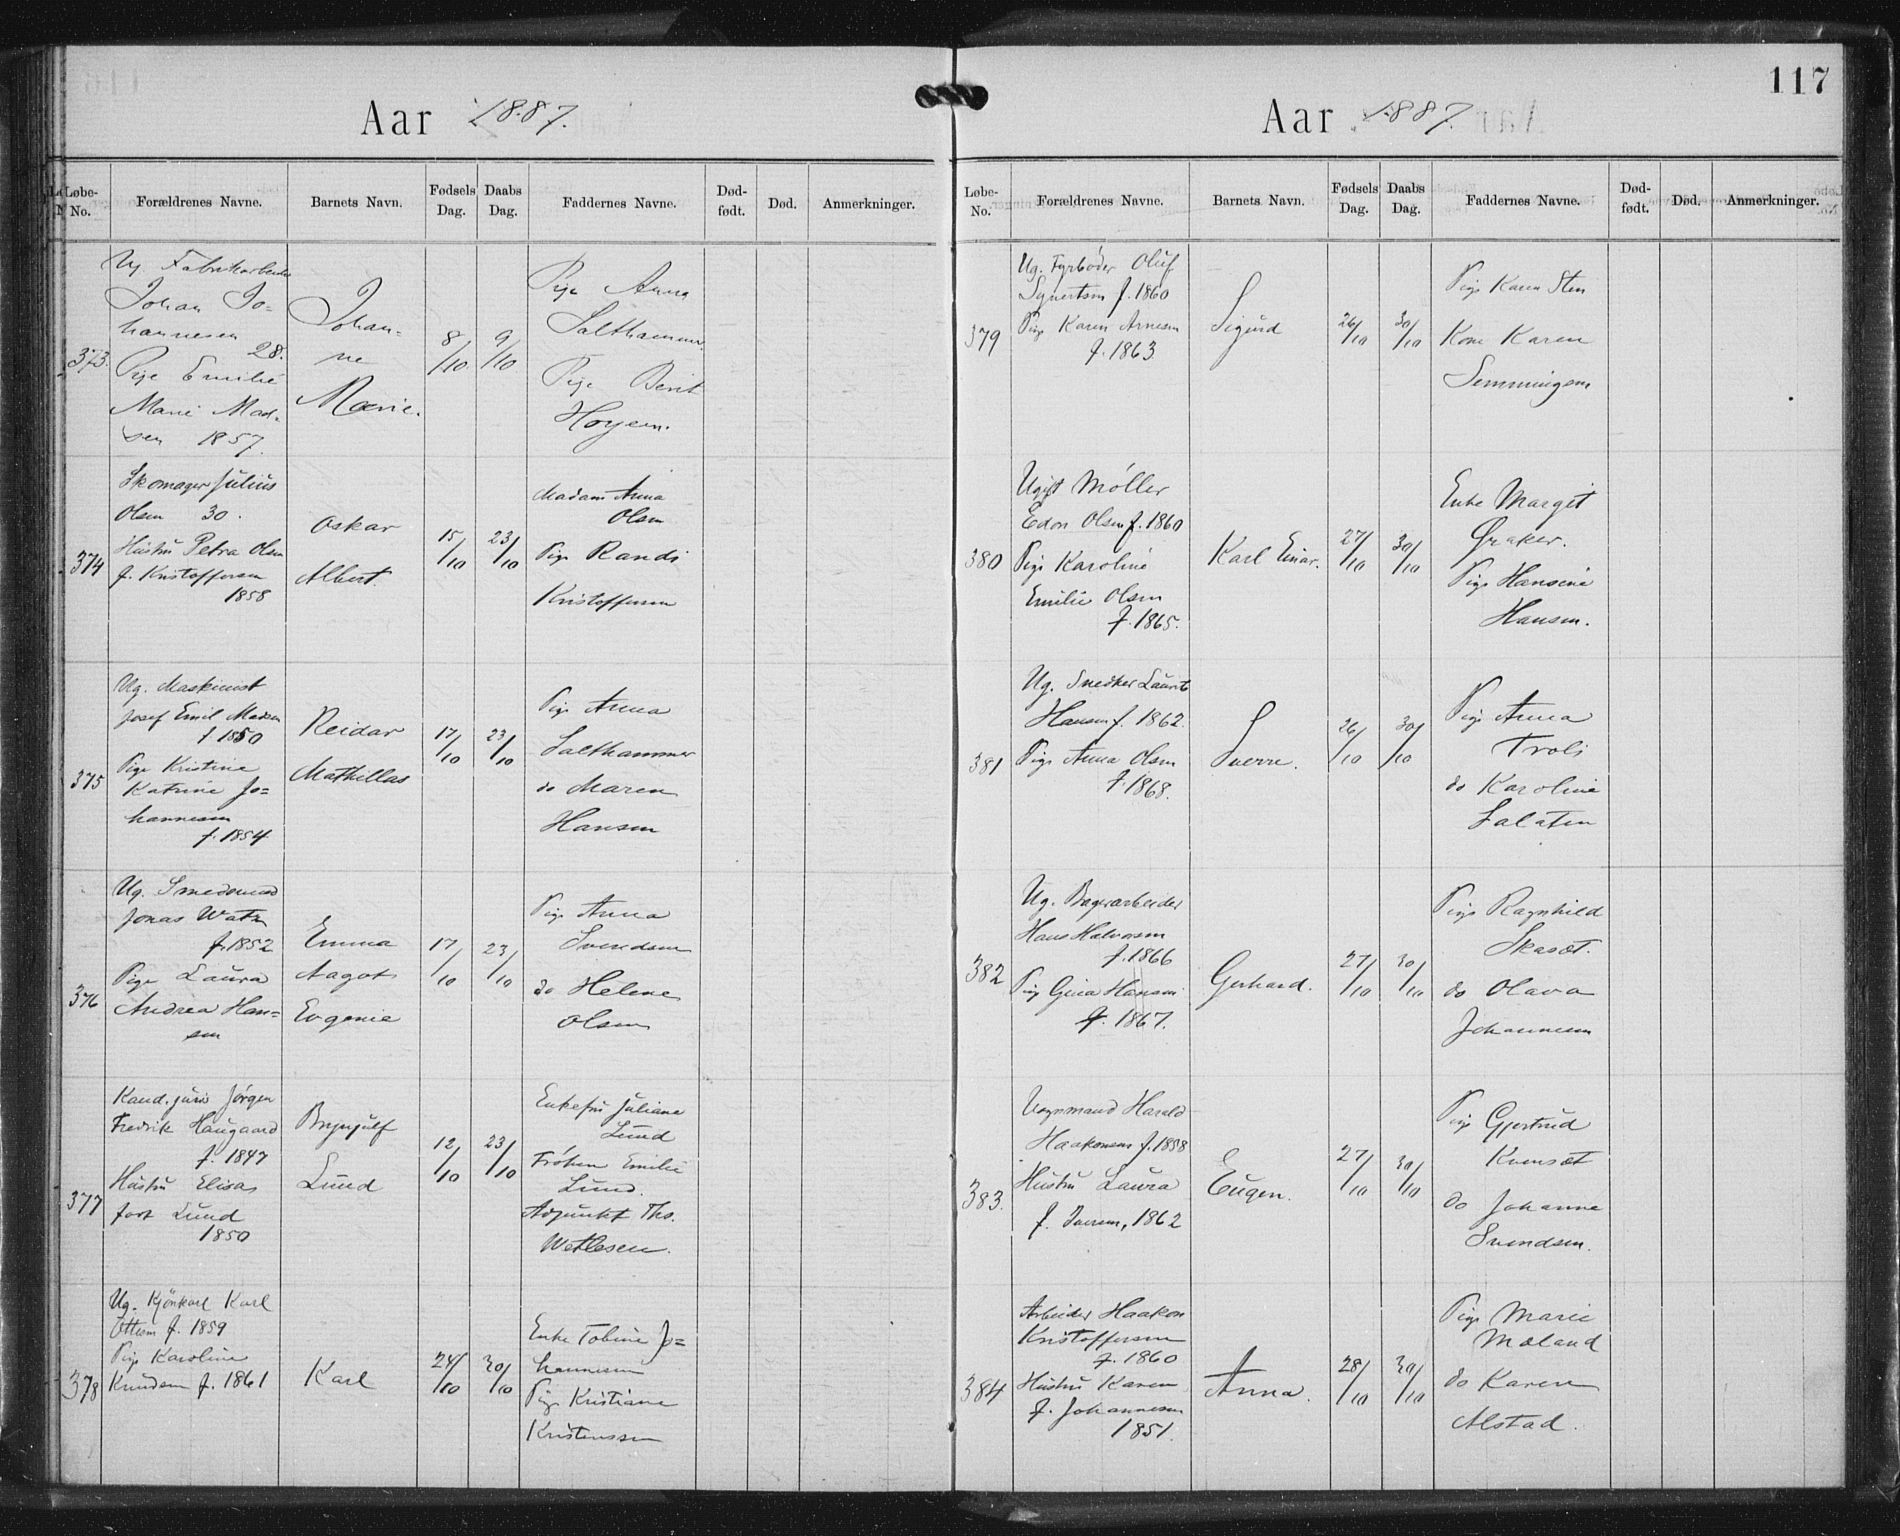 Aar 1887.
Løbe-No. Forældrenes Navne. Barnets Navn. Fødsels Dag. Daabs Dag. Faddernes Navne. Død-født. Død. Anmerkninger.
373.
Ug. Fabrikarbeider
Johan Jo-
hannesen
28.
Pige Emilie
Marie Mad-
sen 1857.
Johan-
ne
Marie.
8/10
9/10
Pige Anna
Salthammer.
Pige Berit
Hoyem.
374
Skomager Julius
Olsen 30.
Hustru Petra Olsen
f. Kristoffersen
1858
Oskar
Albert
15/10
23/10
Madam Anna
Olsen
Pige Randi
Kristoffersen
375
Ug. Maskinist
Josef Emil Madsen
f 1850
Pige Kristine
Katrine Jo-
hannesen
f. 1854
Reidar
Mathillas
17/10
23/10
Pige Anna
Salthammer
do Maren
Hansen
376
Ug. Smedsvend
Jonas
f. 1852
Pige Laura
Andrea Han=
sen
Emma
Aagot
Evgenie
17/10
23/10
Pige Anna
Svendsen
do Helene
Olsen
377
Kand. juris Jørgen
Fredrik Haugaard
f. 1847
Hustru Elisa
født Lund
1850
Brynjulf
Lund
12/10
23/10
Enkefru Juliane
Lund
Frøken Emilie
Lund.
Adjunkt Ths.
Wetlesen.
378
Ug. Kjørkarl Karl
Ottesen f. 1859
Pige Karoline
Knudsen f. 1861
Karl
24/10
30/10
Enke Tobine Jo=
hannesen
Pige Kristiane
Kristenssen
117
Aar 1887.
Løbe-No. Forældrenes Navne. Barnets Navn. Fødsels Dag. Daabs Dag. Faddernes Navne. Død-født. Død. Anmerkninger.
379
Ug. Fyrbøder Oluf
Syvertsen f. 1860
Pige Karen Arnesen
f. 1863
Sigurd
26/10
30/10
Pige Karen Sten
Kone Karen
Semmingsen
380
Ugift Møller
Edon Olsen f. 1860
Pige Karoline
Emilie Olsen
f. 1865.
Karl Einar.
27/10
30/10
Enke Margit
Øraker.
Pige Hansine
Hansen.
381
Ug. Snedker Laurits
Hansen f. 1862.
Pige Anna Olsen
f. 1868.
Sverre.
26/10
30/10
Pige Anna
Troli
do Karoline
Salatin
382
Ug. Bagerarbeider
Hans Halvorsen
f. 1866
Pige Gina Hansen
f. 1867.
Gerhard.
27/10
30/10
Pige Ragnhild
Skasæt.
do Olava
Johannesen
383.
Vognmand Harald
Haakonsen f. 1858
Hustru Laura
f. Iversen, 1862
Eugen.
27/10
30/10
Pige Gjertrud
Kvensæt
do Johanne
Svendsen.
384
Arbeider Haakon
Kristoffersen
f. 1860
Hustru Karen
f. Johannesen
1851.
Anna.
28/10
30/10
Pige Marie
Mæland
do Karen
Alstad.